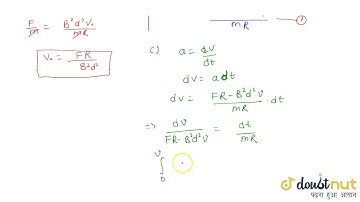 F/m = B²d²V₀/mR
V₀ = FR/B²d²
mR ①
c) a = dv/dt
dv = a dt
dv = (FR - B²d²V)/mR · dt
⇒ dV/(FR - B²d²V) = dt/mR
∫₀ⱽ
doubtnut
पढ़ना हुआ आसान